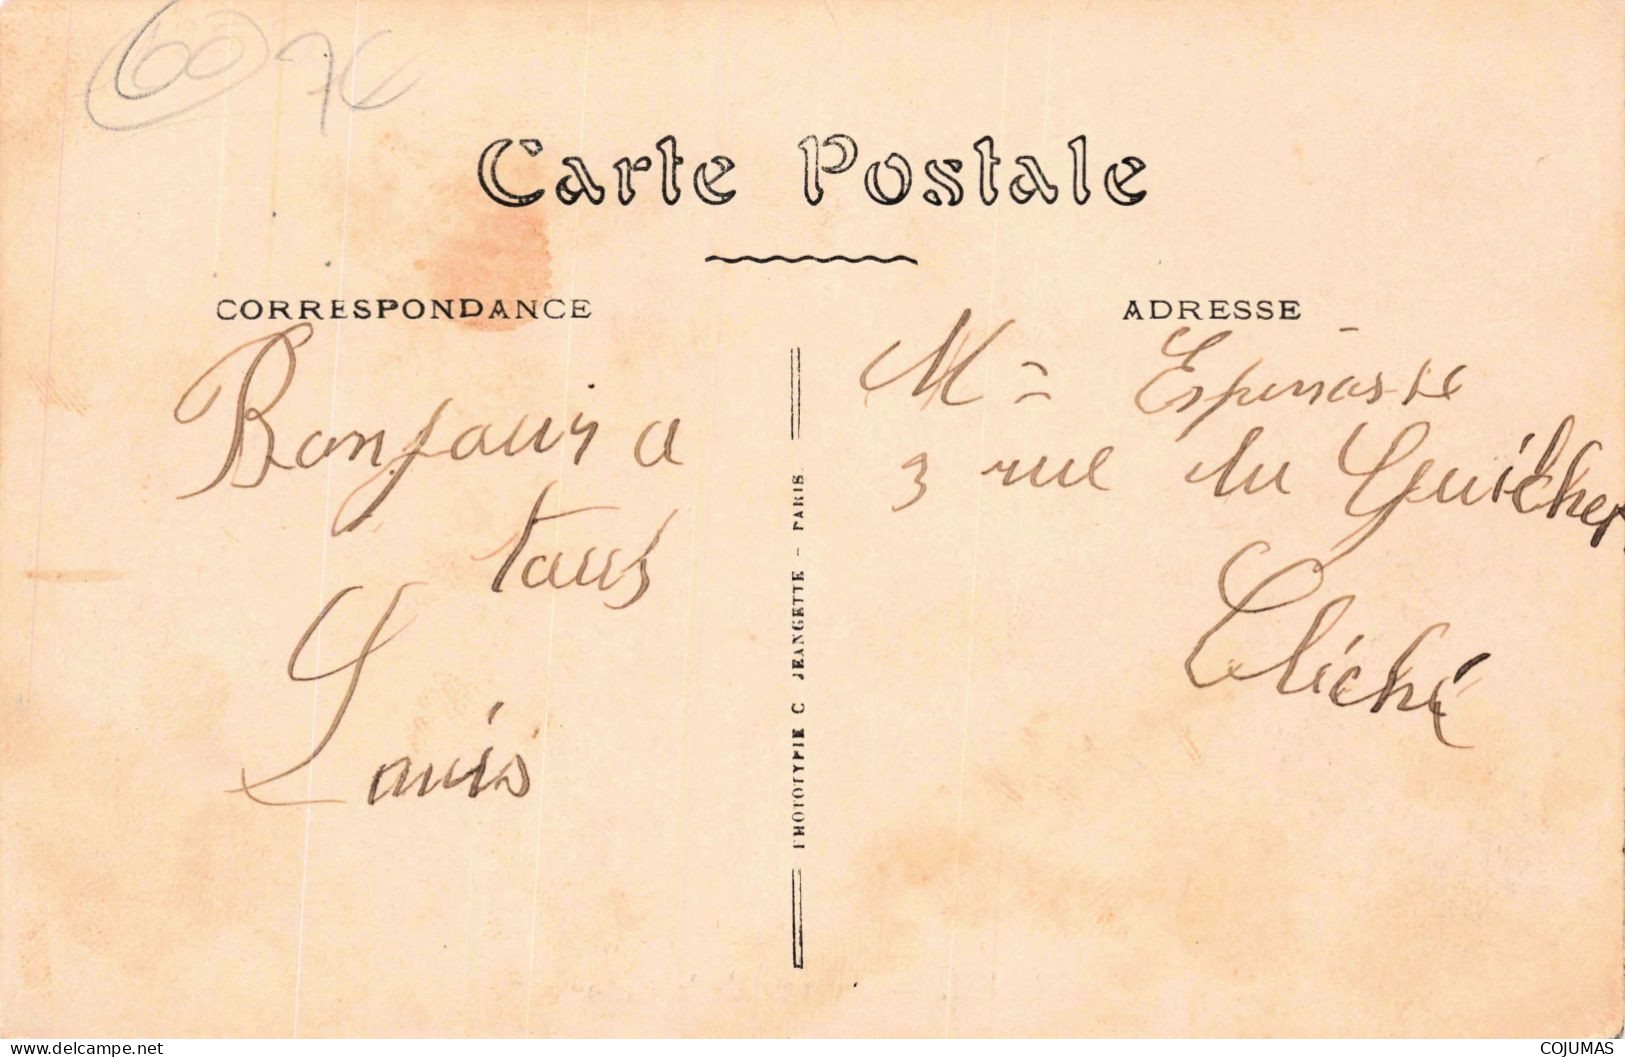 60 7€
Carte Postale
CORRESPONDANCE
Bonjour a
tous
Louis
PHOTOTYPIE C JEANGETTE - PARIS.
ADRESSE
M = Espinasse
3 rue du Guilcher
Cliché
delcampe.net
COJUMAS